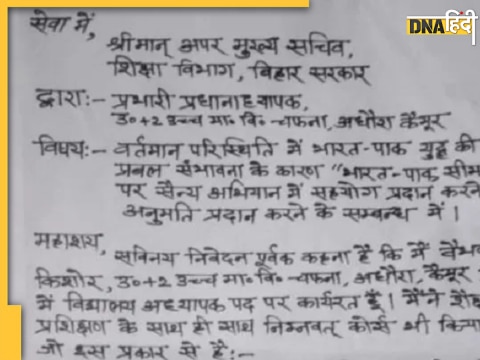 DNA हिंदी
सेवा में,
श्रीमान् अपर मुख्य सचिव,
शिक्षा विभाग, बिहार सरकार
द्वारा:- प्रभारी प्रधानाध्यापक,
उ०+2 उच्च मा० वि०-चफना, अधौरा कैमूर
विषय:- वर्तमान परिस्थिति में भारत-पाक युद्ध की
प्रबल संभावना के कारण "भारत-पाक सीमा
पर सैन्य अभियान में सहयोग प्रदान करने
अनुमति प्रदान करने के सम्बन्ध में।
महाशय,
सविनय निवेदन पूर्वक कहना है कि मैं
किशोर, उ०+2 उच्च मा० वि०-चफना, अधौरा, कैमूर
में विद्यालय अध्यापक पद पर कार्यरत हूँ। मैंने
प्रशिक्षण के साथ ही साथ निम्नवत् कोर्स भी
जो इस प्रकार से है:-